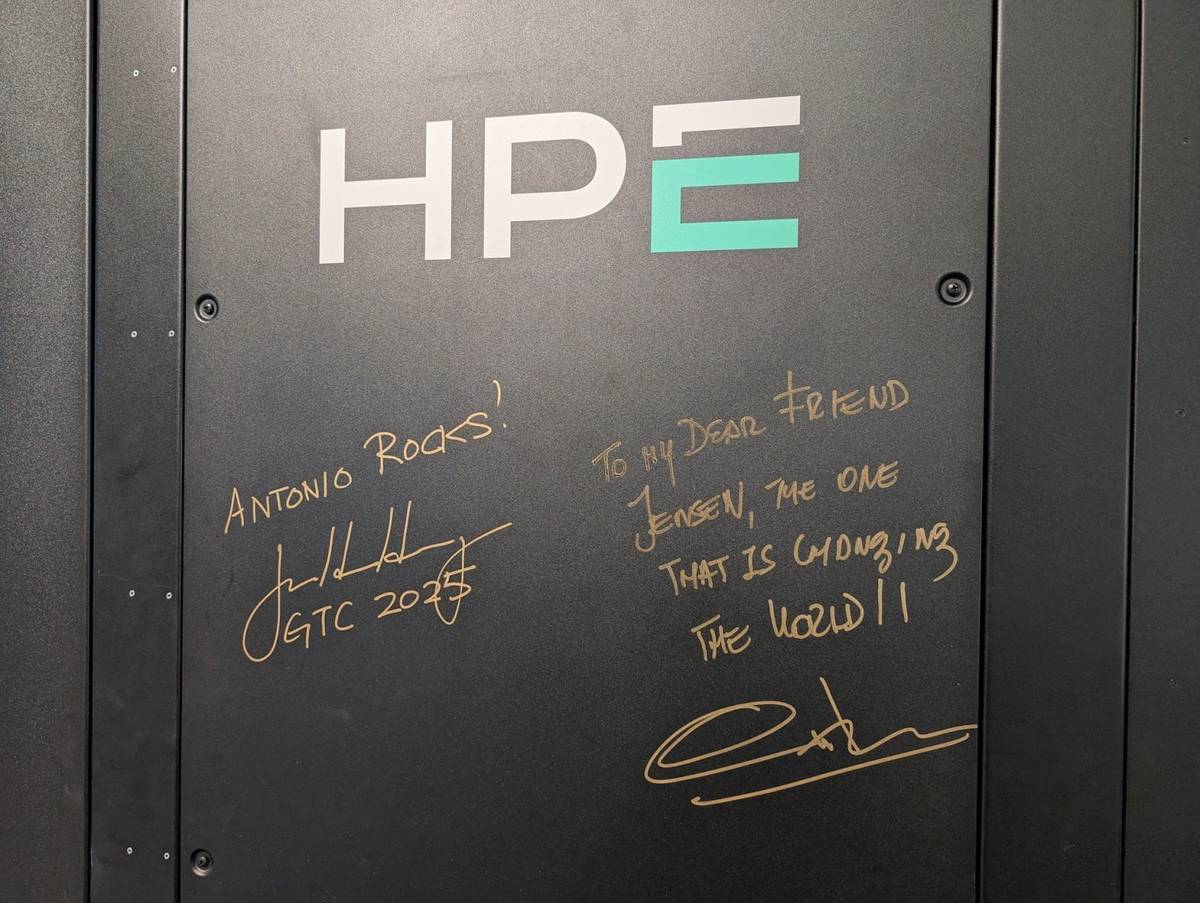 HPE
ANTONIO ROCKS!
GTC 2025
TO MY DEAR FRIEND
JENSEN, THE ONE
THAT IS CHANGING
THE WORLD!!